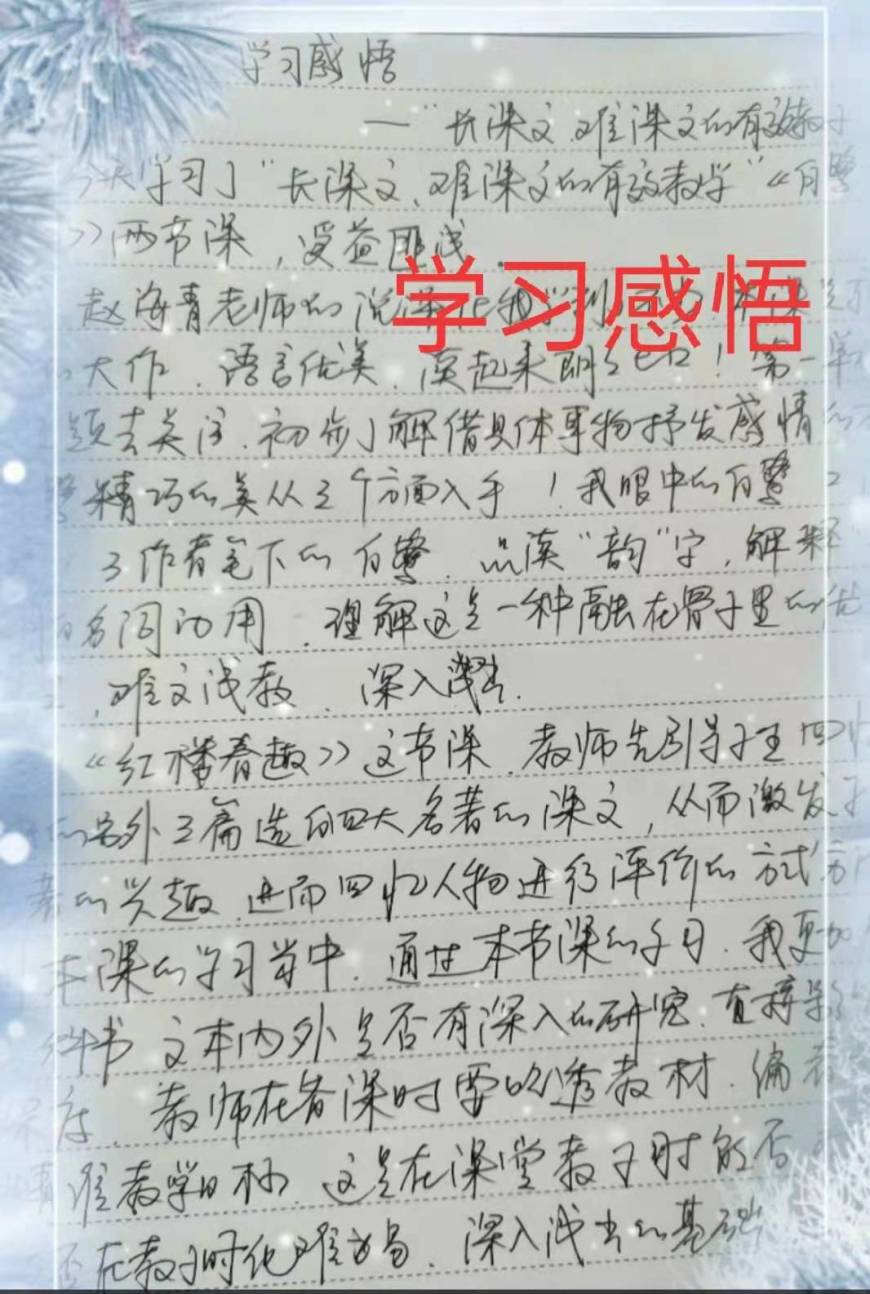 学习感悟
一"长课文、难课文的有效教学
今天学习了"长课文、难课文的有效教学"《白鹭
》两节课，受益匪浅.
学习感悟
赵海青老师的
大作、语言优美、读起来朗朗上口！第一单
题去关注、初步了解借具体事物抒发感情的
鹭精巧的美从三个方面入手 1我眼中的白鹭 2
3作者笔下的白鹭、品读"韵"字，解释
名词 用、理解这是一种融在骨子里的优
二、难文浅教、深入浅出.
《红楼春趣》这节课、教师先引导学生回忆
的另外三篇选自四大名著的课文，从而激发学
的兴趣、进而回忆人物进行评价的方式方
本课的学习当中、通过本节课的学习、我更加
文本内外是否有深入的研究、直接影
度、教师在备课时要吃透教材、编者
准教学目标、这是在课堂教学时能否
否在教学时化难为易、深入浅出的基础